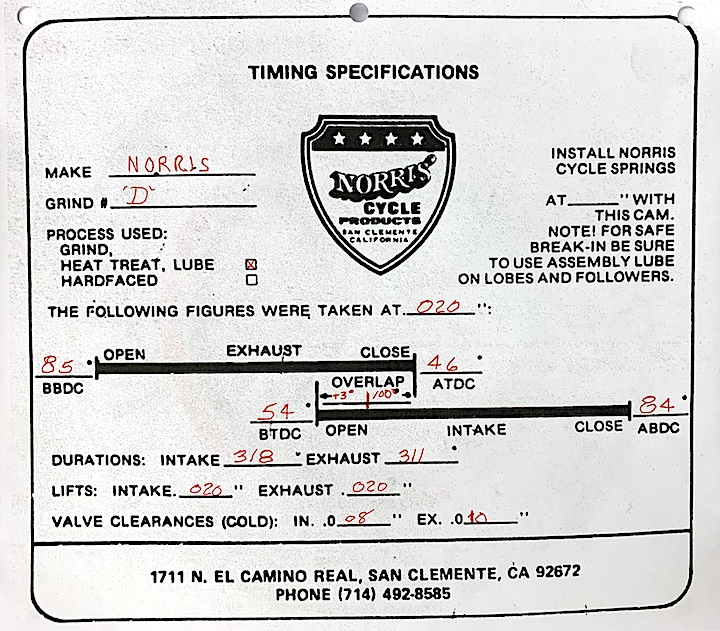 TIMING SPECIFICATIONS
MAKE NORRIS
GRIND # "D"
PROCESS USED:
GRIND,
HEAT TREAT, LUBE ☒
HARDFACED ☐
★ ★ ★ ★
NORRIS
CYCLE
PRODUCTS
SAN CLEMENTE
CALIFORNIA
INSTALL NORRIS
CYCLE SPRINGS
AT______" WITH
THIS CAM.
NOTE! FOR SAFE
BREAK-IN BE SURE
TO USE ASSEMBLY LUBE
ON LOBES AND FOLLOWERS.
THE FOLLOWING FIGURES WERE TAKEN AT .020 ":
OPEN EXHAUST CLOSE
85° BBDC
46° ATDC
OVERLAP
+3° 100°
54° BTDC
OPEN INTAKE CLOSE
84° ABDC
DURATIONS: INTAKE 318° EXHAUST 311°
LIFTS: INTAKE .020" EXHAUST .020"
VALVE CLEARANCES (COLD): IN. .0 08" EX. .0 10"
1711 N. EL CAMINO REAL, SAN CLEMENTE, CA 92672
PHONE (714) 492-8585